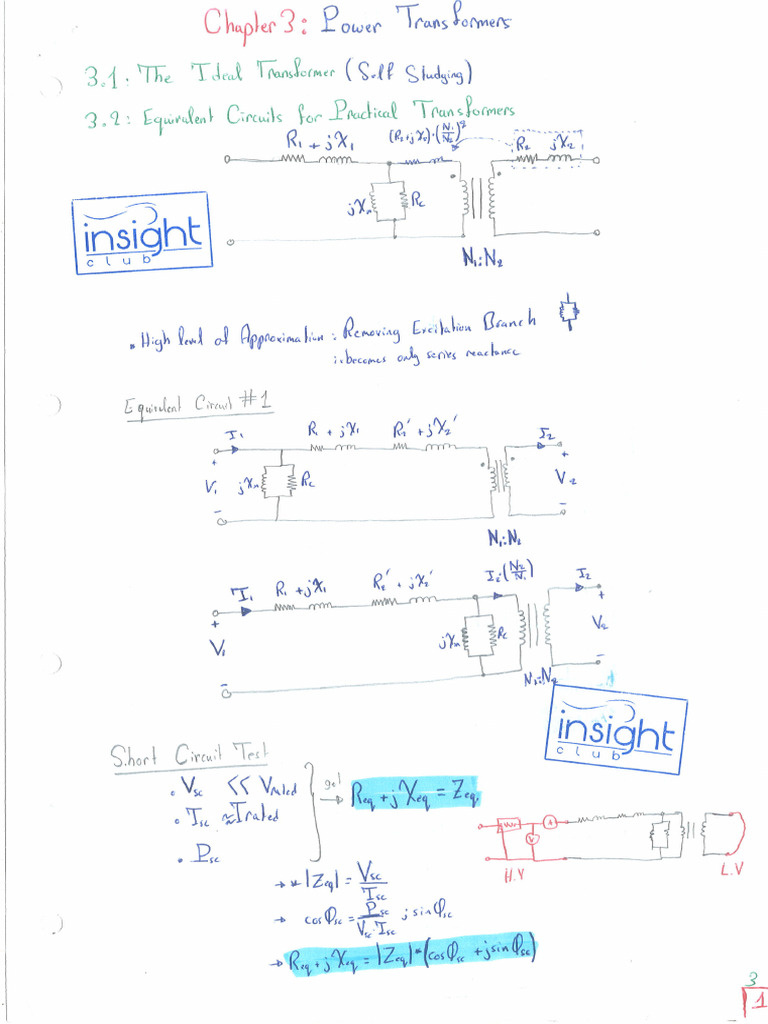 Chapter 3: Power Transformers
3.1: The Ideal Transformer (Self Studying)
3.2: Equivalent Circuits for Practical Transformers
R₁ + jX₁
(R₂+jX₂)·(N₁/N₂)²
R₂ jX₂
jXₘ
R꜀
N₁:N₂
insight
club
• High level of Approximation: Removing Excitation Branch
∴ becomes only series reactance
Equivalent Circuit #1
I₁
R₁ + jX₁
R₂' + jX₂'
I₂
+
+
V₁
jXₘ
R꜀
V₂
-
-
N₁:N₂
I₁
R₁ + jX₁
R₂' + jX₂'
I₂·(N₂/N₁)
I₂
+
+
V₁
jXₘ
R꜀
V₂
-
-
N₁:N₂
insight
club
Short Circuit Test
• Vsc << Vrated
• Isc ≈ Irated
• Psc
get
→ Req + jXeq = Zeq.
A
V
H.V
L.V
→ * |Zeq| = Vsc/Isc
→ cosφsc = Psc/(Vsc·Isc) ; sinφsc
→ Req + jXeq = |Zeq|*(cosφsc + jsinφsc)
3
1